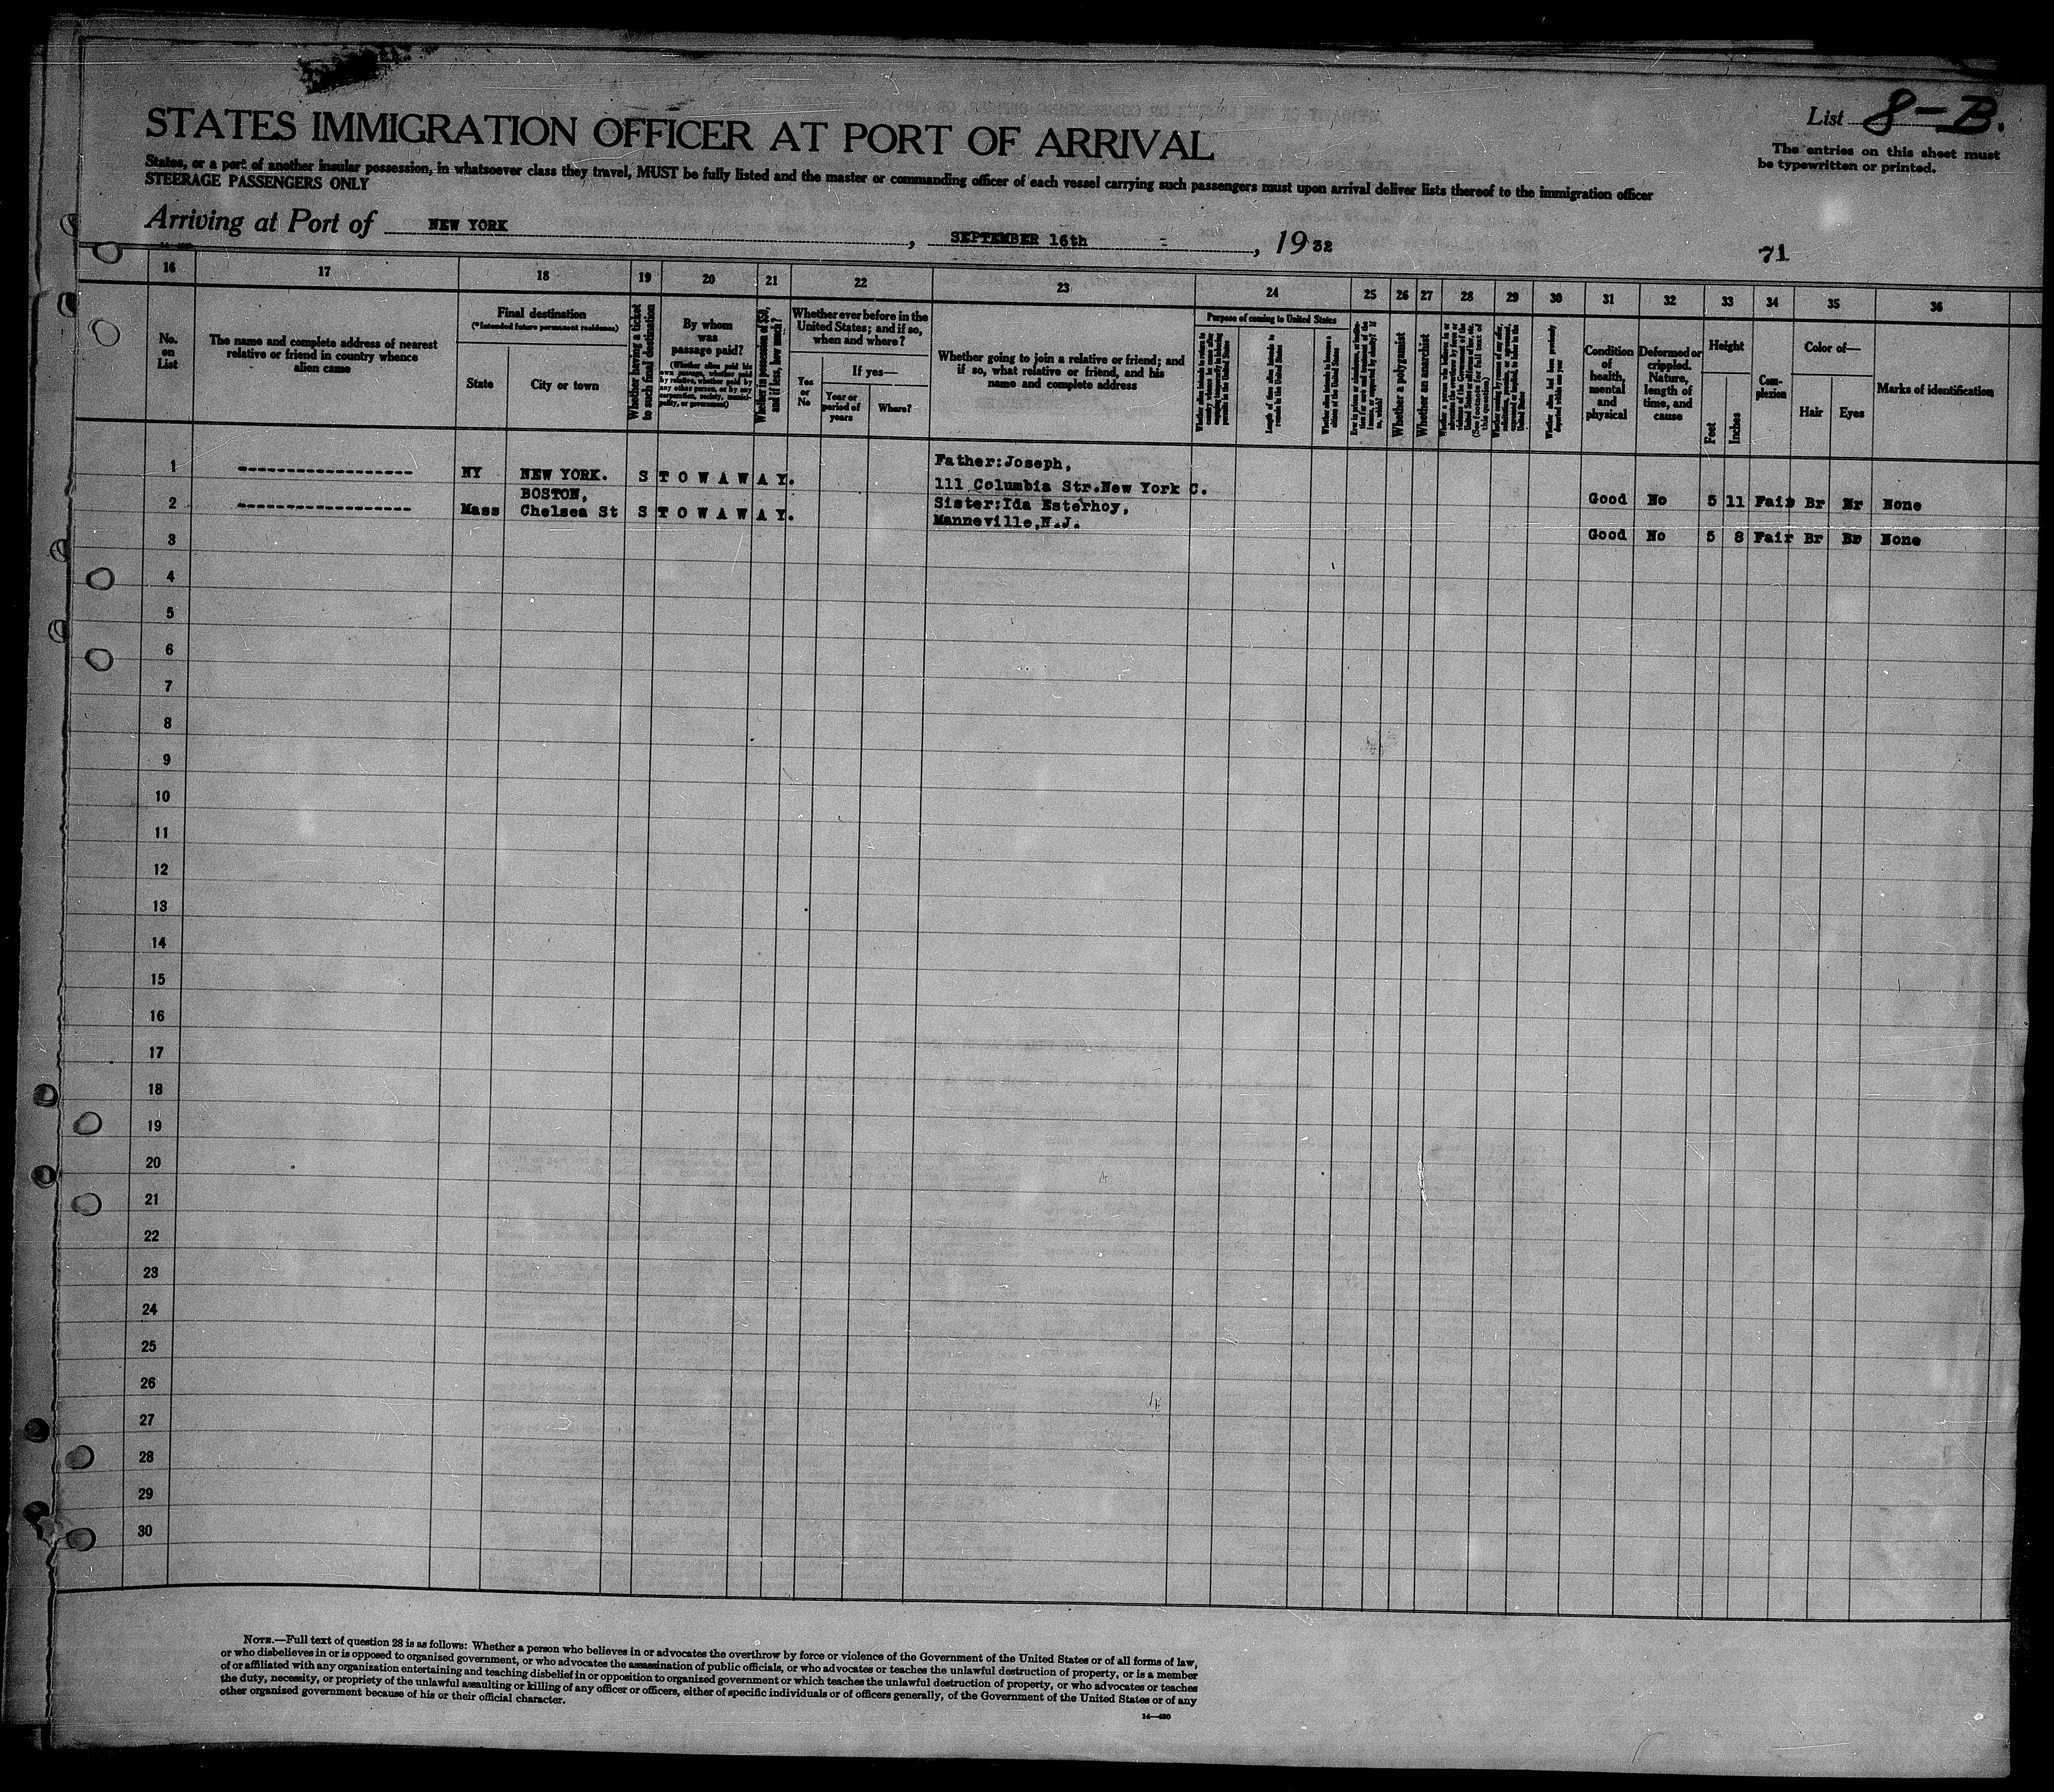 List 8-B.
The entries on this sheet must
be typewritten or printed.
STATES IMMIGRATION OFFICER AT PORT OF ARRIVAL
States, or a port of another insular possession, in whatsoever class they travel, MUST be fully listed and the master or commanding officer of each vessel carrying such passengers must upon arrival deliver lists thereof to the immigration officer
STEERAGE PASSENGERS ONLY
Arriving at Port of NEW YORK, SEPTEMBER 16th, 1932
71
16 17 18 19 20 21 22 23 24 25 26 27 28 29 30 31 32 33 34 35 36
No.
on
List
The name and complete address of nearest
relative or friend in country whence
alien came
Final destination
(*Intended future permanent residence)
State
City or town
Whether having a ticket
to such final destination
By whom
was
passage paid?
(Whether alien paid his
own passage, whether paid
by relative, whether paid by
any other person, or by any
corporation, society, munici-
pality, or government)
Whether in possession of $50,
and if less, how much?
Whether ever before in the
United States; and if so,
when and where?
Yes
or
No
If yes—
Year or
period of
years
Where?
Whether going to join a relative or friend; and
if so, what relative or friend, and his
name and complete address
Purpose of coming to United States
Length of time alien intends to
remain in the United States
Whether alien intends to become a
citizen of the United States
Whether a polygamist
Whether an anarchist
Whether alien had been previously
deported within one year
Condition
of
health,
mental
and
physical
Deformed or
crippled.
Nature,
length of
time, and
cause
Height
Feet
Inches
Com-
plexion
Color of—
Hair
Eyes
Marks of identification
1 NY NEW YORK. S T O W A W A Y. Father:Joseph,
111 Columbia Str.New York C. Good No 5 11 Fair Br Br None
BOSTON,
2 Mass Chelsea St S T O W A W A Y. Sister:Ida Esterhoy,
Manneville,N.J. Good No 5 8 Fair Br Br None
3
4
5
6
7
8
9
10
11
12
13
14
15
16
17
18
19
20
21
22
23
24
25
26
27
28
29
30
NOTE.—Full text of question 28 is as follows: Whether a person who believes in or advocates the overthrow by force or violence of the Government of the United States or of all forms of law,
or who disbelieves in or is opposed to organized government, or who advocates the assassination of public officials, or who advocates or teaches the unlawful destruction of property, or is a member
of or affiliated with any organization entertaining and teaching disbelief in or opposition to organized government or which teaches the unlawful destruction of property, or who advocates or teaches
the duty, necessity, or propriety of the unlawful assaulting or killing of any officer or officers, either of specific individuals or of officers generally, of the Government of the United States or of any
other organized government because of his or their official character.
14—480